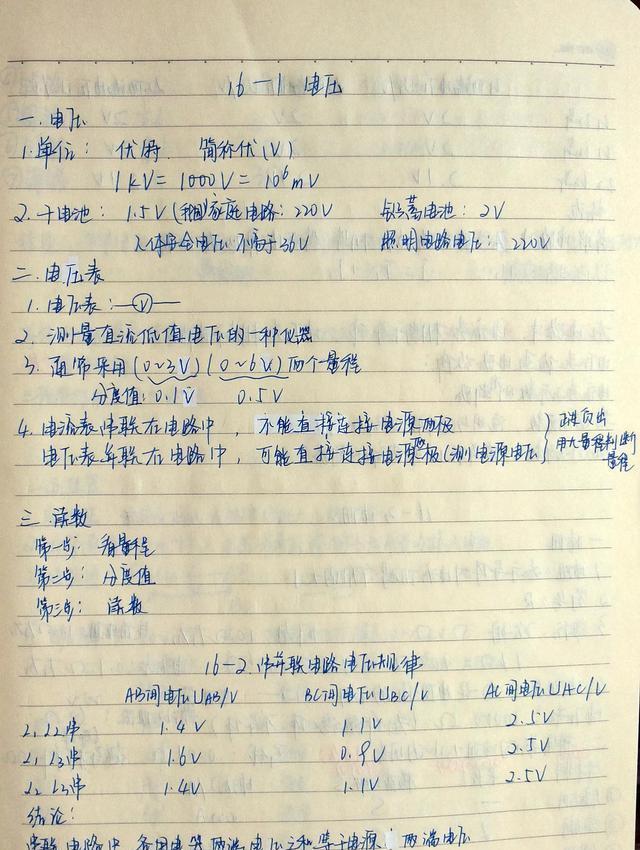 16-1 电压
一.电压
1.单位: 伏特. 简称伏(V)
1kV=1000V=10⁶mV
2.干电池: 1.5V 家庭电路: 220V 铅蓄电池: 2V
人体安全电压 不高于36V 照明电路电压: 220V
二.电压表
1.电压表: —(V)—
2. 测量直流低值电压的一种仪器
3. 通常采用(0~3V)(0~6V)两个量程
分度值: 0.1V 0.5V
4.电流表串联在电路中, 不能直接连接电源两极
电压表并联在电路中, 可能直接连接电源两极(测电源电压
正进负出
用大量程判断
量程
三.读数
第一步: 看量程
第二步: 分度值
第三步: 读数
16-2.串并联电路电压规律
AB间电压UAB/V BC间电压UBC/V AC间电压UAC/V
L1 L2串 1.4V 1.1V 2.5V
L1 L3串 1.6V 0.9V 2.5V
L2 L3串 1.4V 1.1V 2.5V
结论:
串联电路中 各用电器两端电压之和等于电源两端电压